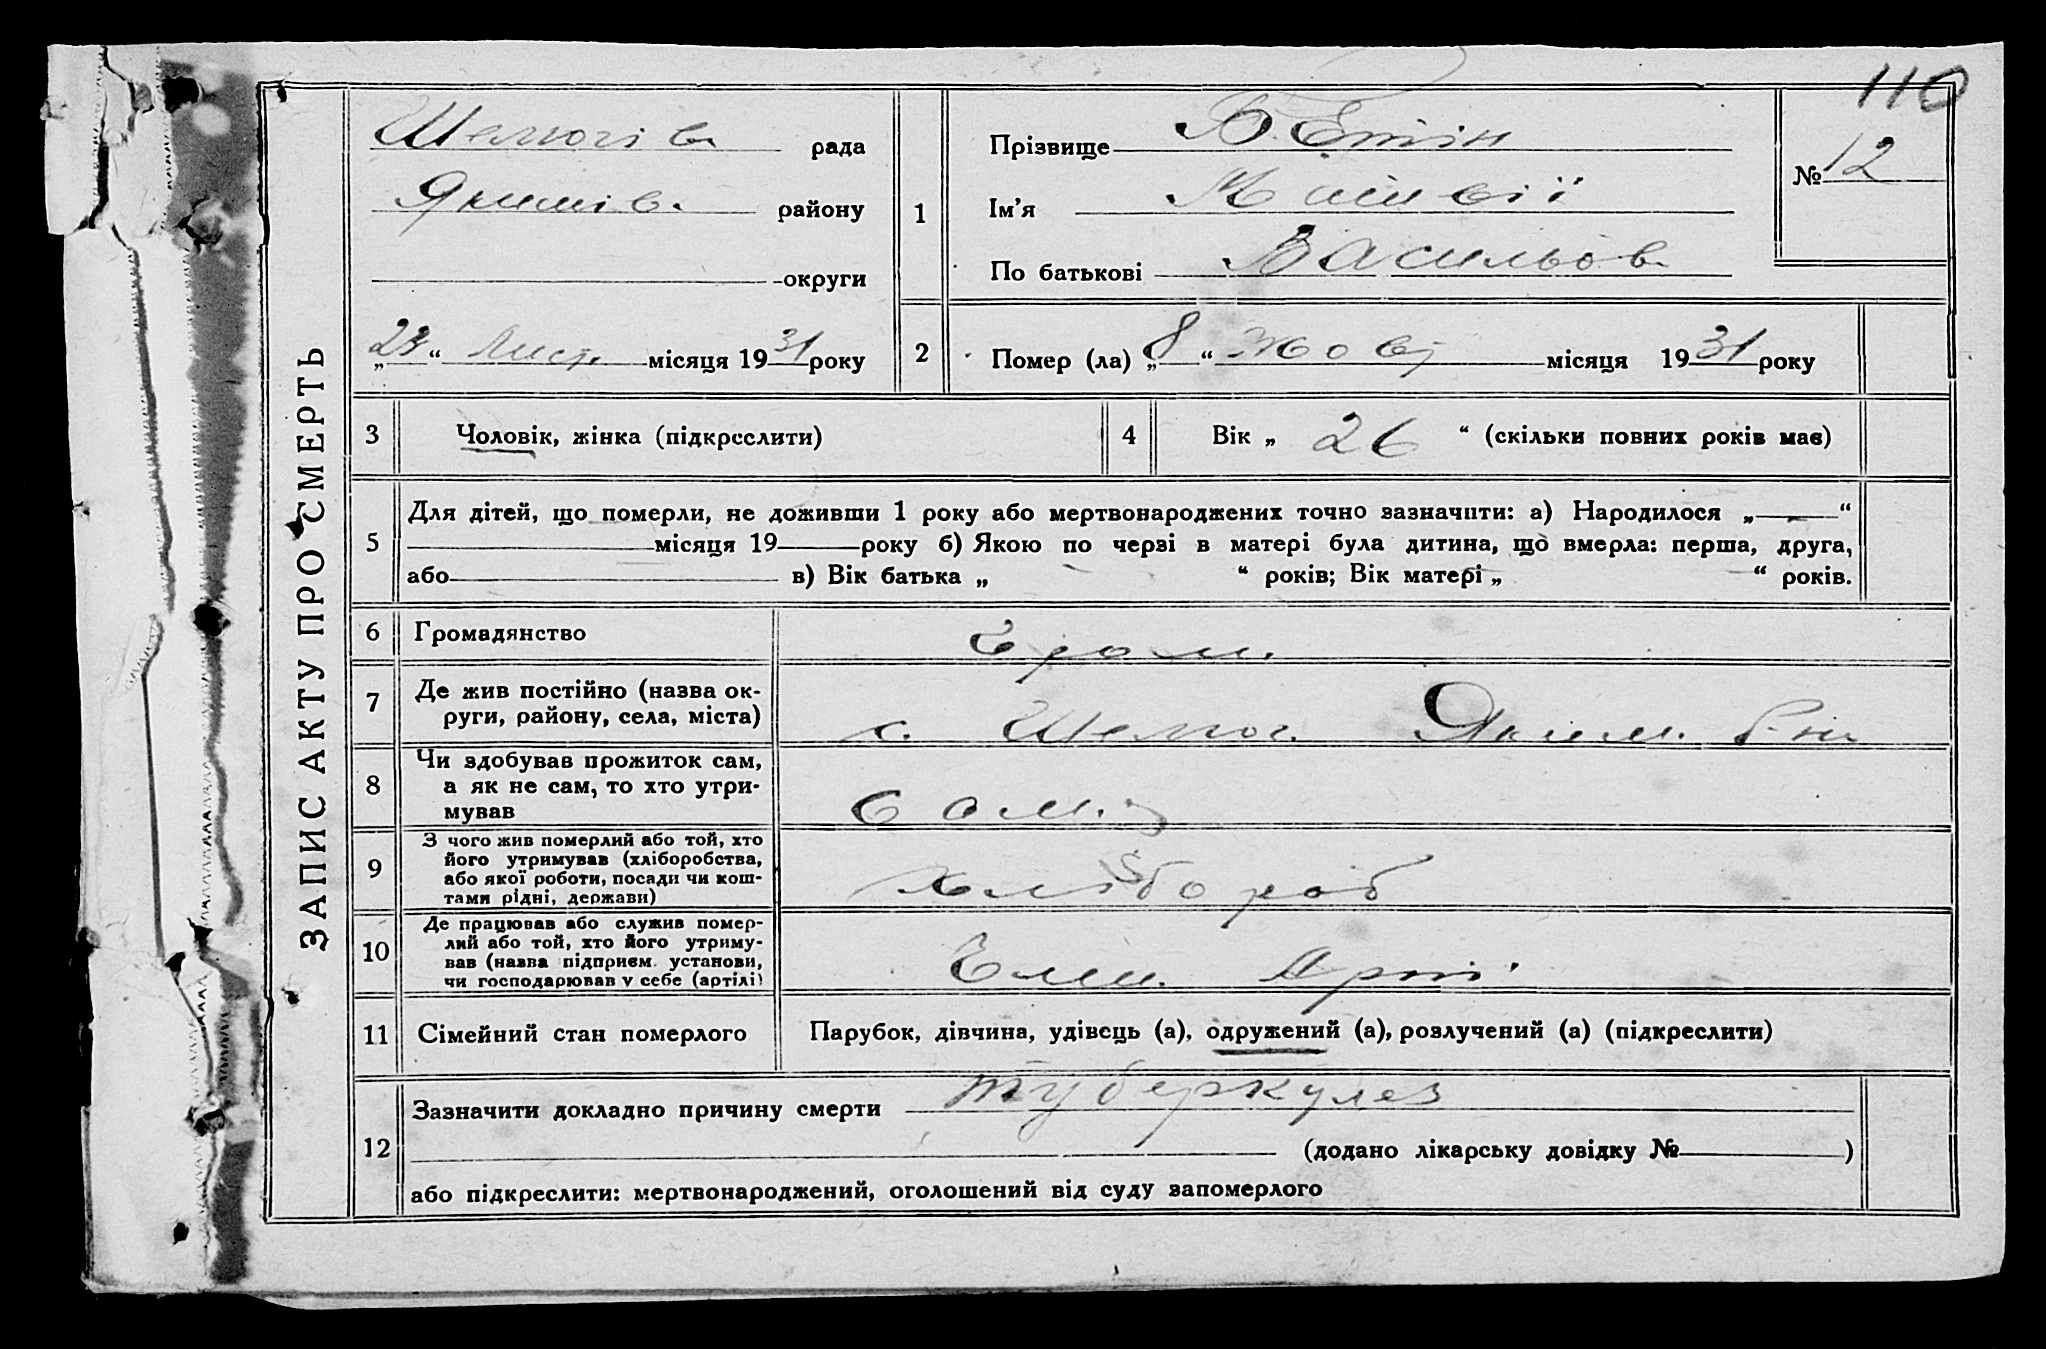 110
Шелюгів рада
Якимів. району
округи
„23“ Лист. місяця 1931 року
ЗАПИС АКТУ ПРО СМЕРТЬ
1
Прізвище
Ім'я Матвій
По батькові Васильов
№ 12
2 Помер (ла) „8“ Жовт місяця 1931 року
3 Чоловік, жінка (підкреслити)
4 Вік „26“ (скільки повних років має)
5 Для дітей, що померли, не доживши 1 року або мертвонароджених точно зазначити: а) Народилося „—“
місяця 19 року б) Якою по черзі в матері була дитина, що вмерла: перша, друга,
або в) Вік батька „ “ років; Вік матері „ “ років.
6 Громадянство
7 Де жив постійно (назва ок-
руги, району, села, міста)
с. Шелюг. Яким. р-н
8 Чи здобував прожиток сам,
а як не сам, то хто утри-
мував
Сам.
9 З чого жив померлий або той, хто
його утримував (хліборобства,
або якої роботи, посади чи кош-
тами рідні, держави)
Хлібороб
10 Де працював або служив помер-
лий або той, хто його утриму-
вав (назва підприєм. установи,
чи господарював у себе (артілі)
Арті.
11 Сімейний стан померлого
Парубок, дівчина, удівець (а), одружений (а), розлучений (а) (підкреслити)
12 Зазначити докладно причину смерти туберкулез
(додано лікарську довідку № )
або підкреслити: мертвонароджений, оголошений від суду запомерлого